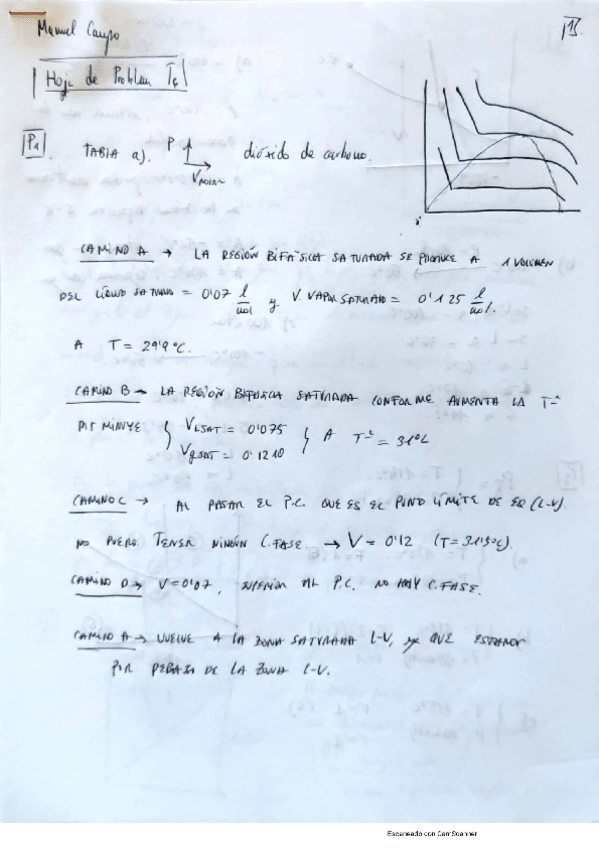 Manuel Campo
Hoja de Problem T4
P1. TABLA a). P dióxido de carbono.
V molar
CAMINO A → LA REGIÓN BIFÁSICA SATURADA SE PRODUCE A 1 VOLUMEN
DEL LÍQUIDO SATURADO = 0'07 l/mol y V. VAPOR SATURADO = 0'125 l/mol.
A T = 29'9 °C.
CAMINO B → LA REGIÓN BIFÁSICA SATURADA CONFORME AUMENTA LA Tª
DISMINUYE { VLSAT = 0'075
VgSAT = 0'1210 } A Tª = 31ºC
CAMINO C → AL PASAR EL P.C. QUE ES EL PUNTO LÍMITE DE EQ (L-V).
NO PUEDO TENER NINGÚN C.FASE. → V = 0'12 (T = 31'5ºC).
CAMINO D → V = 0'07, SUPERIOR AL P.C. NO HAY C.FASE.
CAMINO A → VUELVE A LA ZONA SATURADA L-V, ya QUE ESTAMOS
POR DEBAJO DE LA ZONA L-V.
Escaneado con CamScanner